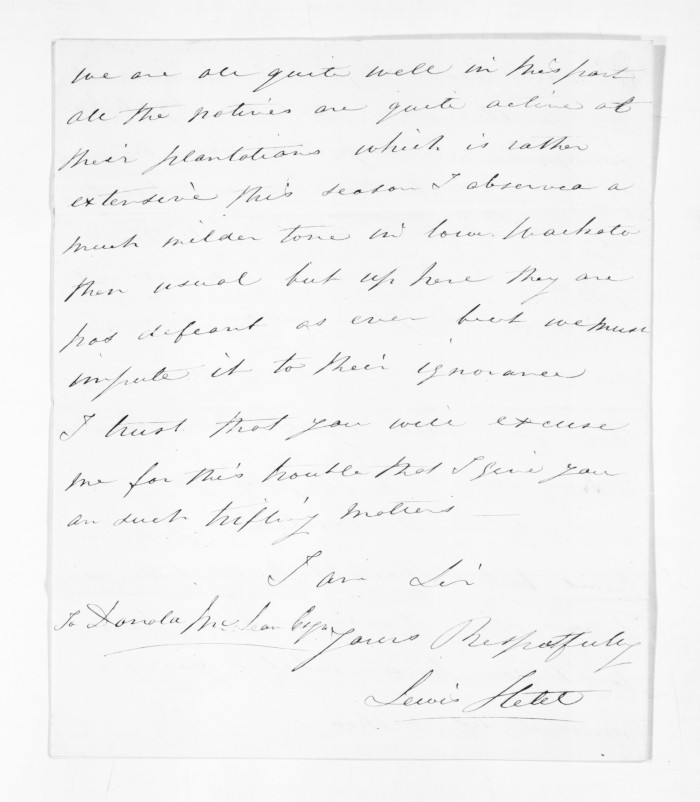 we are all quite well in this part
all the natives are quite active at
their plantations which is rather
extensive this season I observed a
much milder tone in lower Waikato
then usual but up here they are
has defeant as ever but we must
impute it to their ignorance
I trust that you will excuse
me for this trouble that I give you
on such trifling matters —
I am Sir
To Donald McLean Esqr Yours Respectfully
Lewis Hetet